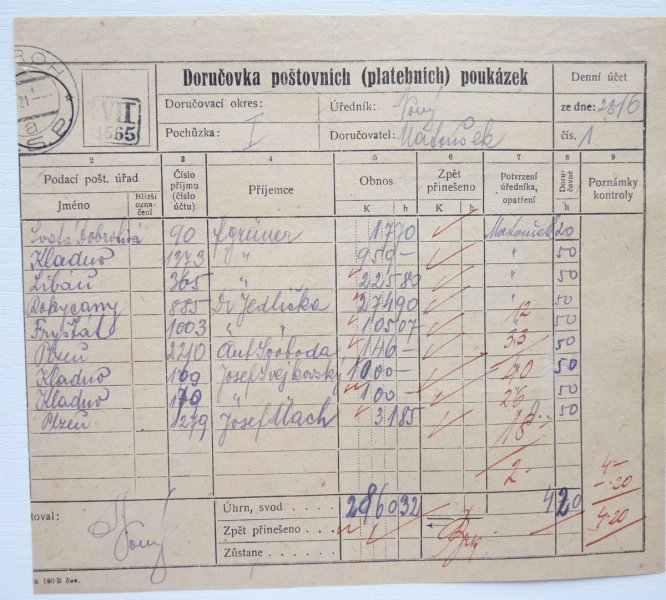 Doručovka poštovních (platebních) poukázek
Denní účet
Doručovací okres: Úředník: Nový ze dne: 28/6
Pochůzka: I Doručovatel: Matoušek čís. 1
VII
1565
2 3 4 5 6 7 8 9
Podací pošt. úřad Číslo příjmu (číslo účtu) Příjemce Obnos Zpět přineseno Potvrzení úředníka, opatření Doručovné Poznámky kontroly
Jméno Bližší označení K h K h h
Dobrotivá 90 Grüner 17 70 Matoušek 20
Kladno 1373 " 959 - " 50
Libáň 365 " 225 80 " 50
Rokycany 885 Dr Jedlička 274 90 " 50
Fryštát 1003 " " 105 07 " 50
Plzeň 2210 Ant Svoboda 146 - 33 50
Kladno 169 Josef Švejkovský 1000 - 50
Kladno 170 " " 100 - 26 50
Plzeň 1279 Josef Mach 31 85 18 50
2.-
4-
-.20
Úhrn, svod . . . . 2860 32 4 20
4.20
Zpět přineseno . . .
Zůstane . . . . .
toval:
Nový
k 160 B čus.